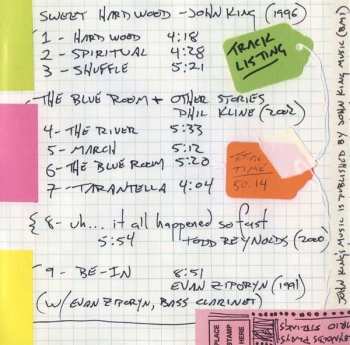 SWEET HARDWOOD - JOHN KING (1996)
1 - HARDWOOD 4:18
2 - SPIRITUAL 4:28
3 - SHUFFLE 5:21
TRACK LISTING
THE BLUE ROOM + OTHER STORIES
PHIL KLINE (2002)
4 - THE RIVER 5:33
5 - MARCH 5:12
6 - THE BLUE ROOM 5:20
7 - TARANTELLA 4:04
TOTAL
TIME
50:14
{ 8 - uh... it all happened so fast
5:54 TODD REYNOLDS (2000)
9 - BE-IN 8:51
EVAN ZIPORYN (1991)
(W/ EVAN ZIPORYN, BASS CLARINET)
JOHN KING'S MUSIC IS PUBLISHED BY JOHN KING MUSIC (BMI)
PLACE
STAMP
HERE